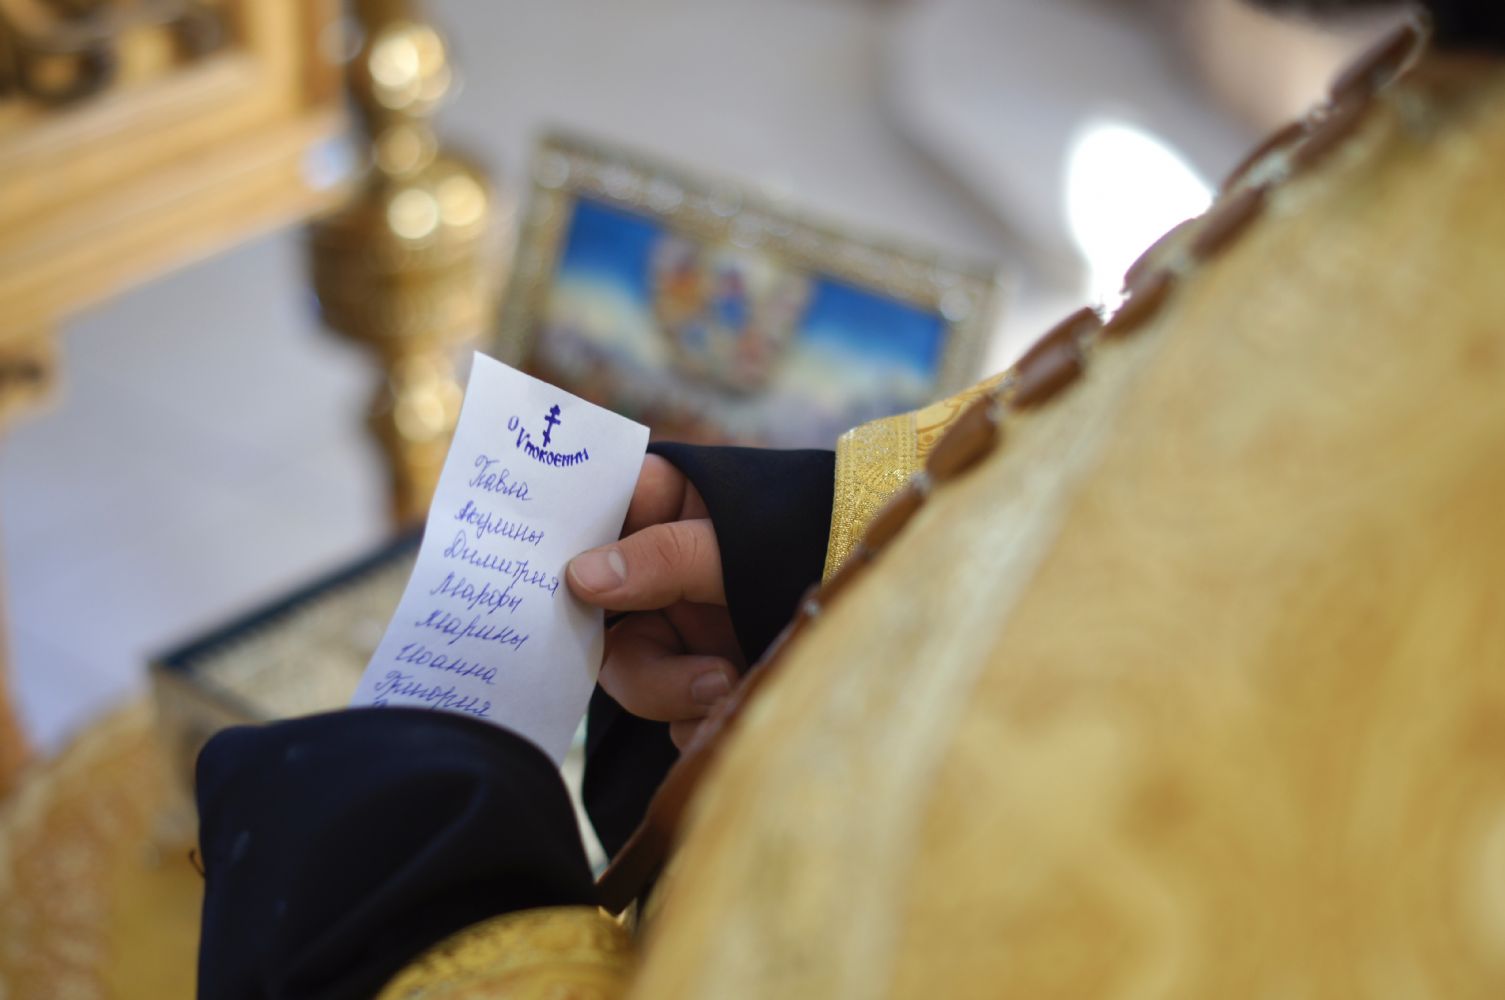 О Упокоении
Павла
Акулины
Димитрия
Марфы
Марины
Иоанна
Григория